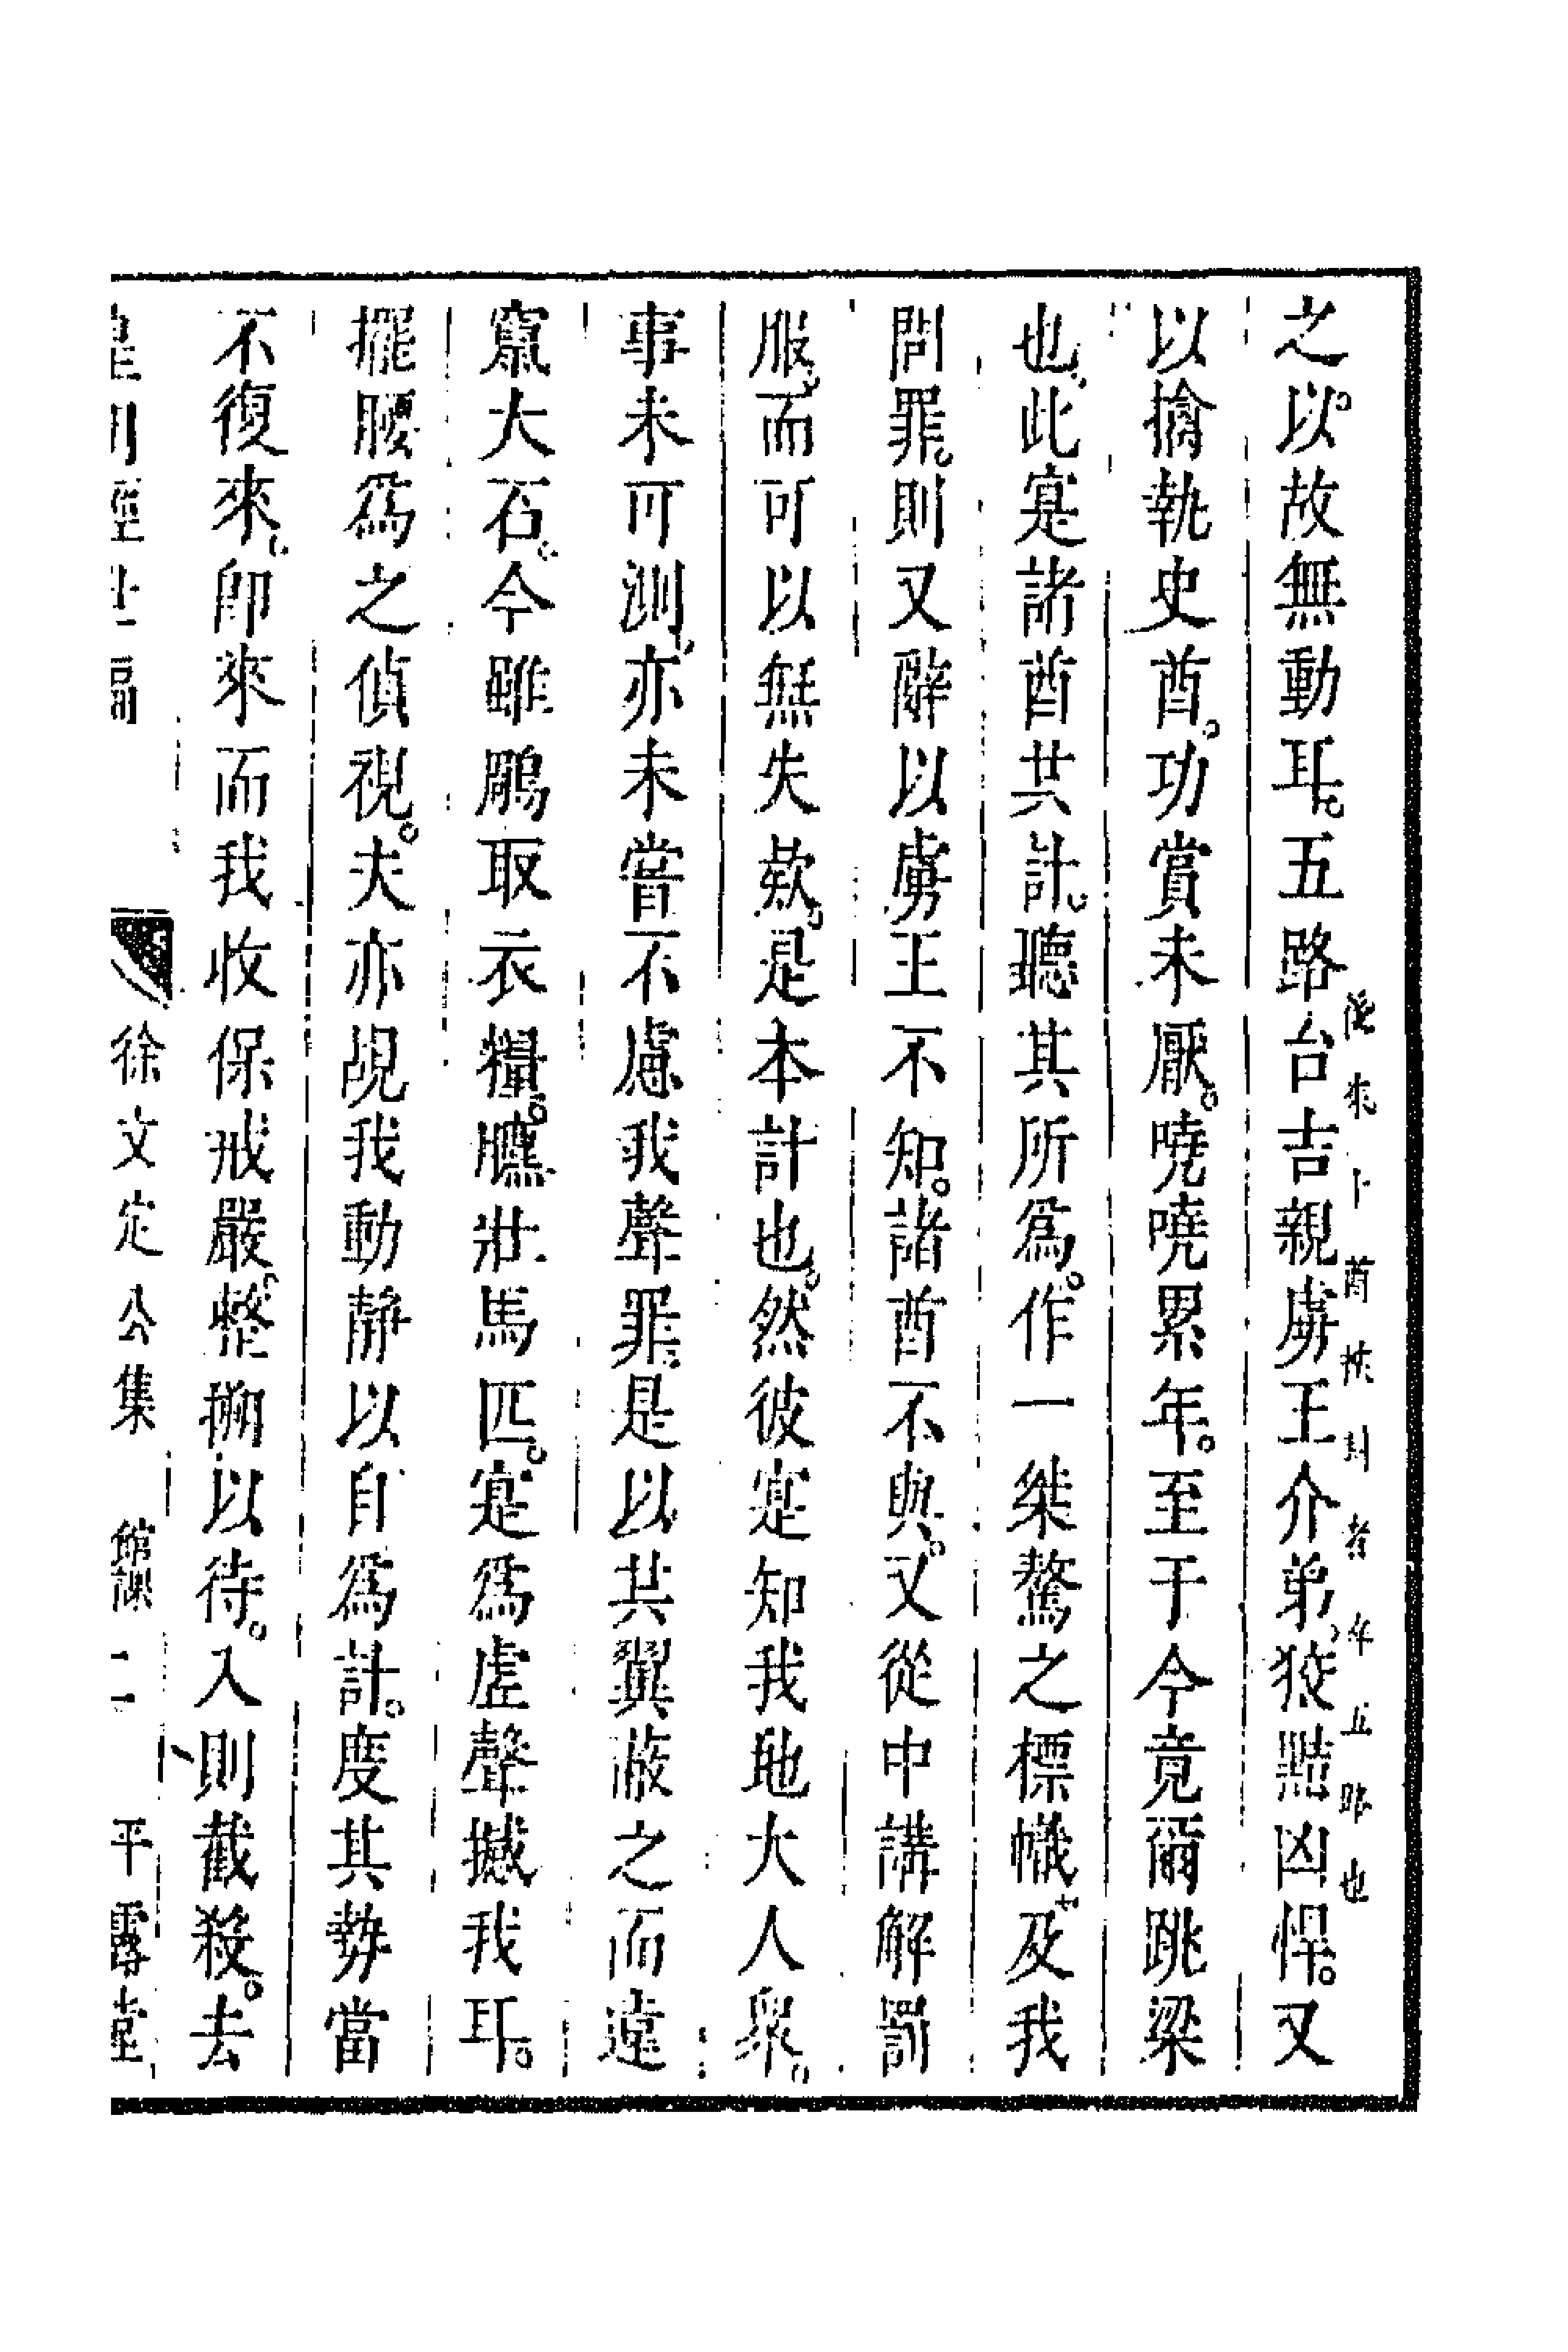 後來卜酋挾封者年五路也
之以故無動耳五路台吉親虜王介弟狡黠凶悍又
以擒執史酋功賞未厭嘵嘵累年至于今竟爾跳梁
也此寔諸酋共計聽其所爲作一桀驁之標幟及我
問罪則又辭以虜王不知諸酋不與又從中講解罰
服而可以無失欵是本計也然彼寔知我地大人衆
事未可測亦未嘗不慮我聲罪是以共翼蔽之而遠
竄大石今雖鵰取衣糧臕壯馬匹寔爲虛聲撼我耳
擺腰爲之偵視夫亦覘我動靜以自爲計度其勢當
不復來卽來而我收保戒嚴整搠以待入則截殺去
皇明經世編 徐文定公集 館課 二 平露堂